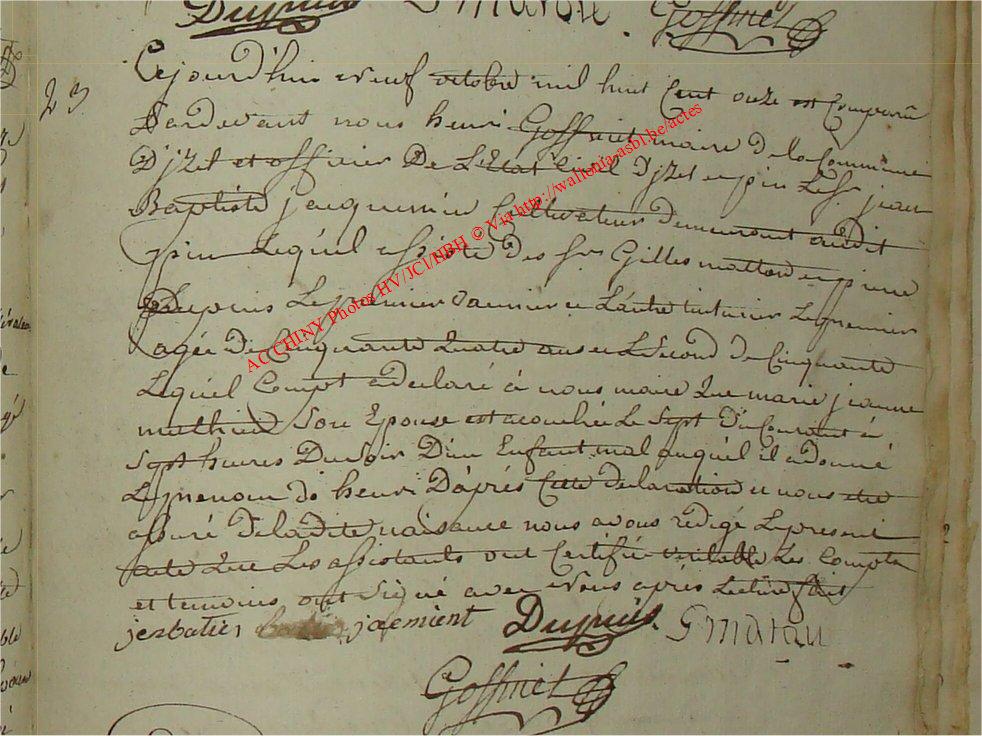 Dupuis G matou Goffinet
23
Cejourd'hui neuf octobre mil huit Cent onze est Comparu
Pardevant nous henri Goffinet maire de la Commune
D'jzel et officier De L'Etat Civil D'jzel en pin Le Sr jean
Baptiste jacquemin Cultivateur demeurant audit
pin Lequel assisté des Srs Gilles matton en pierre
Dupuis Le premier et L'autre Le premier
agée De Cinquante Quatre ans et Le Second de Cinquante
Lequel Compt a déclaré à nous maire Que marie jeanne
mathieu Son Epouse est acouchée Le Sept Du Courant à
Sept heures Du Soir D'un Enfant mal auquel il a donné
Le prenom de henri D'après Cette declaration et nous etre
assuré De la dite naissance nous avons rédigé Le present
acte Que Les assistants ont Certifié veritable Les Compts
et temoins ont signé avec Nous après Lecture fait
jenbatist jacmient Dupuis G matou
Goffinet
ACCHINY Photos HV/JCI/HBH © Via http://wallonia-asbl.be/actes